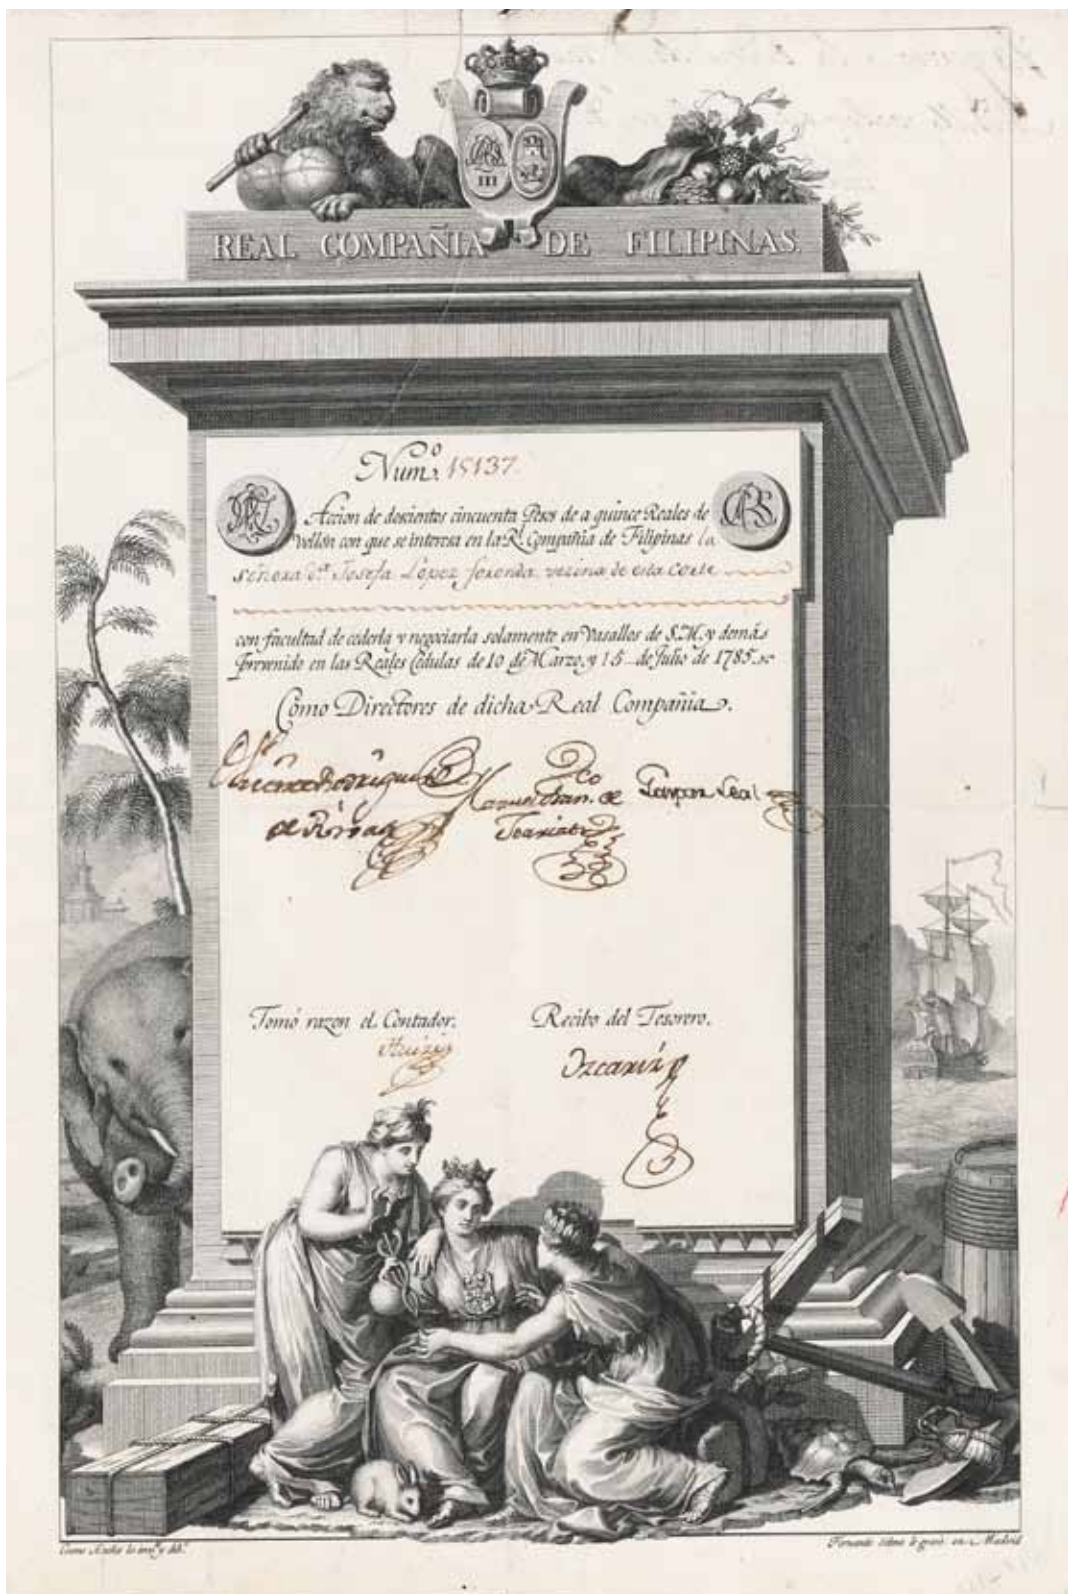 III
REAL COMPAÑIA DE FILIPINAS.
Numº. 15137.
Accion de doscientos cincuenta Pesos de a quince Reales de
Vellón con que se interesa en la Rl. Compañia de Filipinas la
Señora Da. Josefa López vezina de esta Corte
con facultad de cederla y negociarla solamente en Vasallos de S.M. y demás
prevenido en las Reales Cédulas de 10 de Marzo, y 15 de Julio de 1785.
Como Directores de dicha Real Compañia.
Manuel Fran.co de Gaspar Leal
Tomó razon el Contador. Recibo del Tesorero.
Cosme Acuña lo inv. y dib.
Fernando Selma lo gravó en Madrid